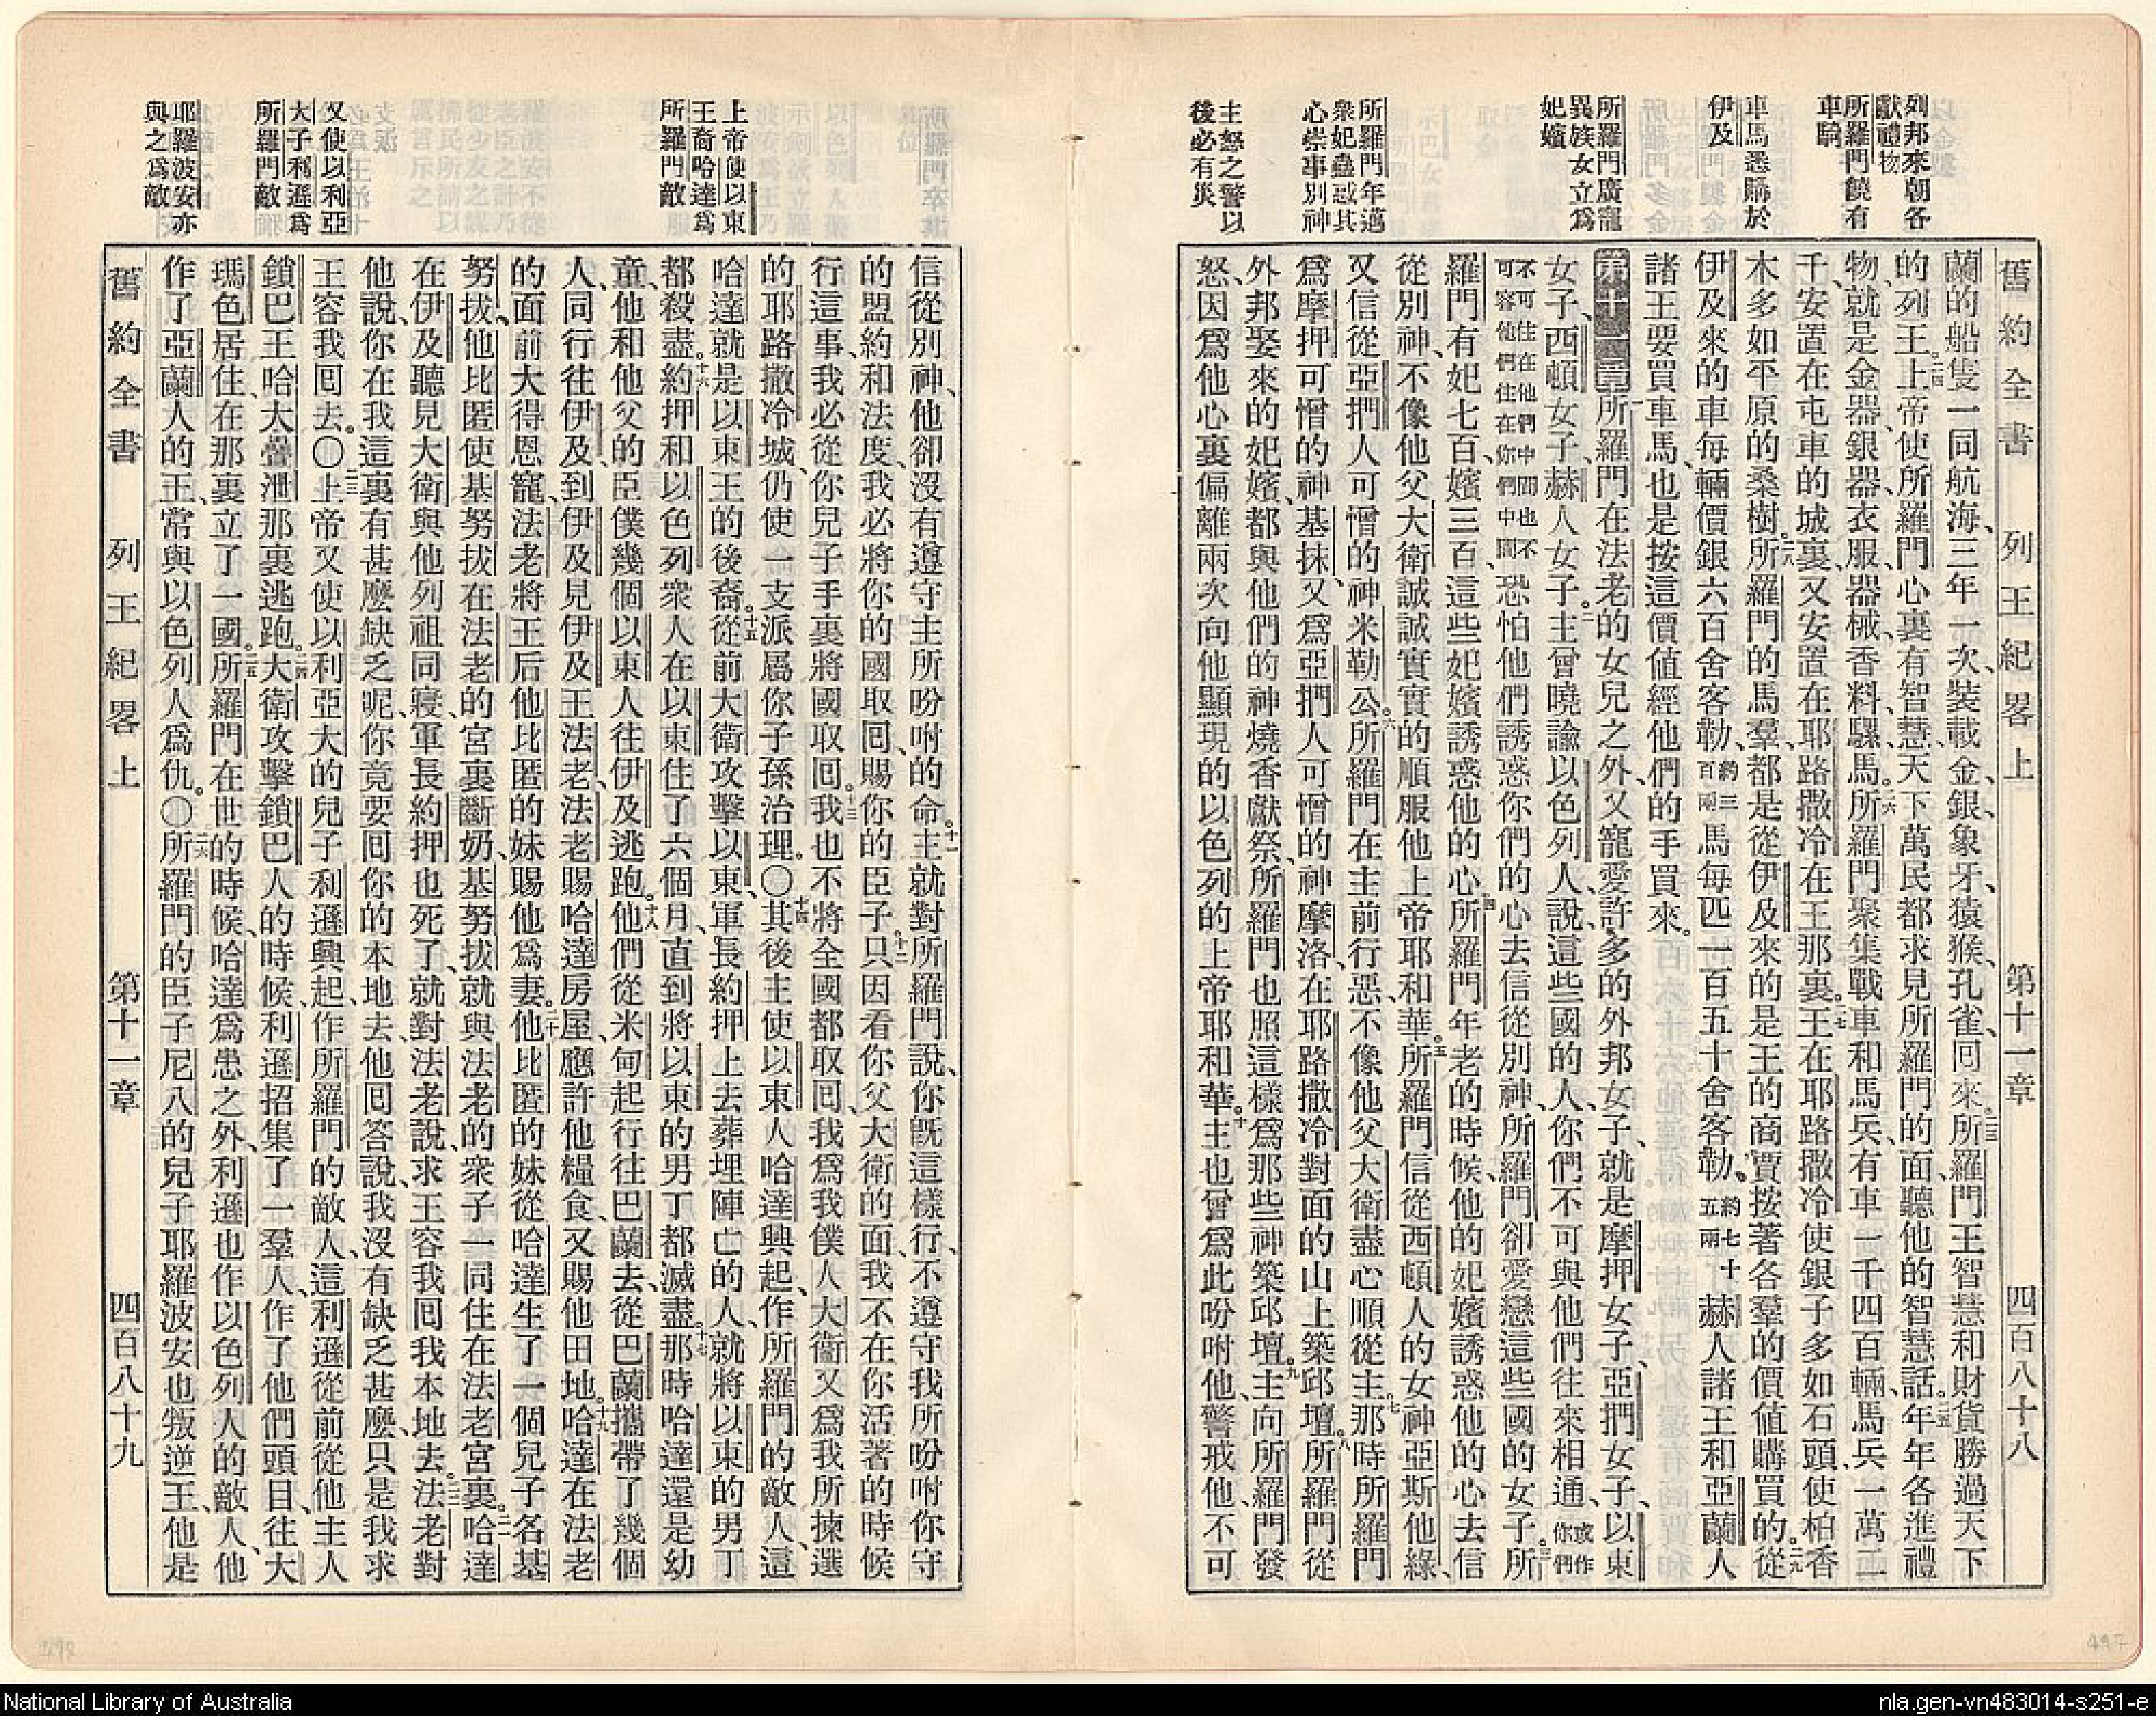 列邦來朝各
獻禮物
所羅門饒有
車騎
車馬悉購於
伊及
所羅門廣寵
異族女立爲
妃嬪
所羅門年邁
衆妃蠱惑其
心崇事別神
主怒之警以
後必有災
舊約全書 列王紀畧上 第十一章 四百八十八
蘭的船隻一同航海、三年一次、裝載金、銀、象牙、猿猴、孔雀、囘來。二三所羅門王智慧和財貨勝過天下
的列王。二四上帝使所羅門心裏有智慧、天下萬民都求見所羅門的面、聽他的智慧話。二五年年各進禮
物、就是金器、銀器、衣服、器械、香料、騾馬。二六所羅門聚集戰車和馬兵、有車一千四百輛、馬兵一萬二
千、安置在屯車的城裏、又安置在耶路撒冷、在王那裏。二七王在耶路撒冷使銀子多如石頭、使柏香
木多如平原的桑樹。二八所羅門的馬羣、都是從伊及來的、是王的商賈按著各羣的價値購買的。二九從
伊及來的車每輛價銀六百舍客勒、約三百兩馬每匹一百五十舍客勒。約七十五兩赫人諸王和亞蘭人
諸王要買車馬、也是按這價値經他們的手買來。
第十一章一所羅門在法老的女兒之外、又寵愛許多的外邦女子、就是摩押女子、亞捫女子、以東
女子、西頓女子、赫人女子。二主曾曉諭以色列人、說、這些國的人、你們不可與他們往來相通、或作你們
不可住在他們中間也不可容他們住在你們中間、恐怕他們誘惑你們的心去信從別神、所羅門卻愛戀這些國的女子。三所
羅門有妃七百、嬪三百、這些妃嬪誘惑他的心。四所羅門年老的時候、他的妃嬪誘惑他的心去信
從別神、不像他父大衛誠誠實實的順服他上帝耶和華。五所羅門信從西頓人的女神亞斯他綠、
又信從亞捫人可憎的神米勒公。六所羅門在主前行惡、不像他父大衛盡心順從主。七那時所羅門
爲摩押可憎的神基抹、又爲亞捫人可憎的神摩洛、在耶路撒冷對面的山上築邱壇。八所羅門從
外邦娶來的妃嬪、都與他們的神燒香獻祭、所羅門也照這樣爲那些神築邱壇。九主向所羅門發
怒、因爲他心裏偏離兩次向他顯現的以色列的上帝耶和華。十主也曾爲此吩咐他、警戒他、不可
上帝使以東
王裔哈達爲
所羅門敵
又使以利亞
大子利遜爲
所羅門敵
耶羅波安亦
與之爲敵
信從別神、他卻沒有遵守主所吩咐的命。十一主就對所羅門說、你旣這樣行、不遵守我所吩咐你守
的盟約和法度、我必將你的國取囘、賜你的臣子。十二只因看你父大衛的面、我不在你活著的時候
行這事、我必從你兒子手裏將國取囘。十三我也不將全國都取囘、我爲我僕人大衛又爲我所揀選
的耶路撒冷城、仍使一支派屬你子孫治理。〇十四其後主使以東人哈達興起、作所羅門的敵人、這
哈達就是以東王的後裔。十五從前大衛攻擊以東、軍長約押上去葬埋陣亡的人、就將以東的男丁
都殺盡。十六約押和以色列衆人在以東住了六個月、直到將以東的男丁都滅盡。十七那時哈達還是幼
童、他和他父的臣僕幾個以東人往伊及逃跑。十八他們從米甸起行往巴蘭去、從巴蘭攜帶了幾個
人、同行往伊及、到伊及見伊及王法老、法老賜哈達房屋、應許他糧食、又賜他田地。十九哈達在法老
的面前大得恩寵、法老將王后他比匿的妹賜他爲妻。二十他比匿的妹從哈達生了一個兒子名基
努拔、他比匿使基努拔在法老的宮裏斷奶、基努拔就與法老的衆子一同住在法老宮裏。二一哈達
在伊及聽見大衛與他列祖同寢、軍長約押也死了、就對法老說、求王容我囘我本地去。二二法老對
他說、你在我這裏有甚麼缺乏呢、你竟要囘你的本地去、他囘答說、我沒有缺乏甚麼、只是我求
王容我囘去。〇二三上帝又使以利亞大的兒子利遜興起、作所羅門的敵人、這利遜從前從他主人
鎖巴王哈大疊泄那裏逃跑。二四大衛攻擊鎖巴人的時候、利遜招集了一羣人、作了他們頭目、往大
瑪色居住、在那裏立了一國。二五所羅門在世的時候、哈達爲患之外、利遜也作以色列人的敵人、他
作了亞蘭人的王、常與以色列人爲仇。〇二六所羅門的臣子尼八的兒子耶羅波安也叛逆王、他是
舊約全書 列王紀畧上 第十一章 四百八十九
National Library of Australia
nla.gen-vn483014-s251-e